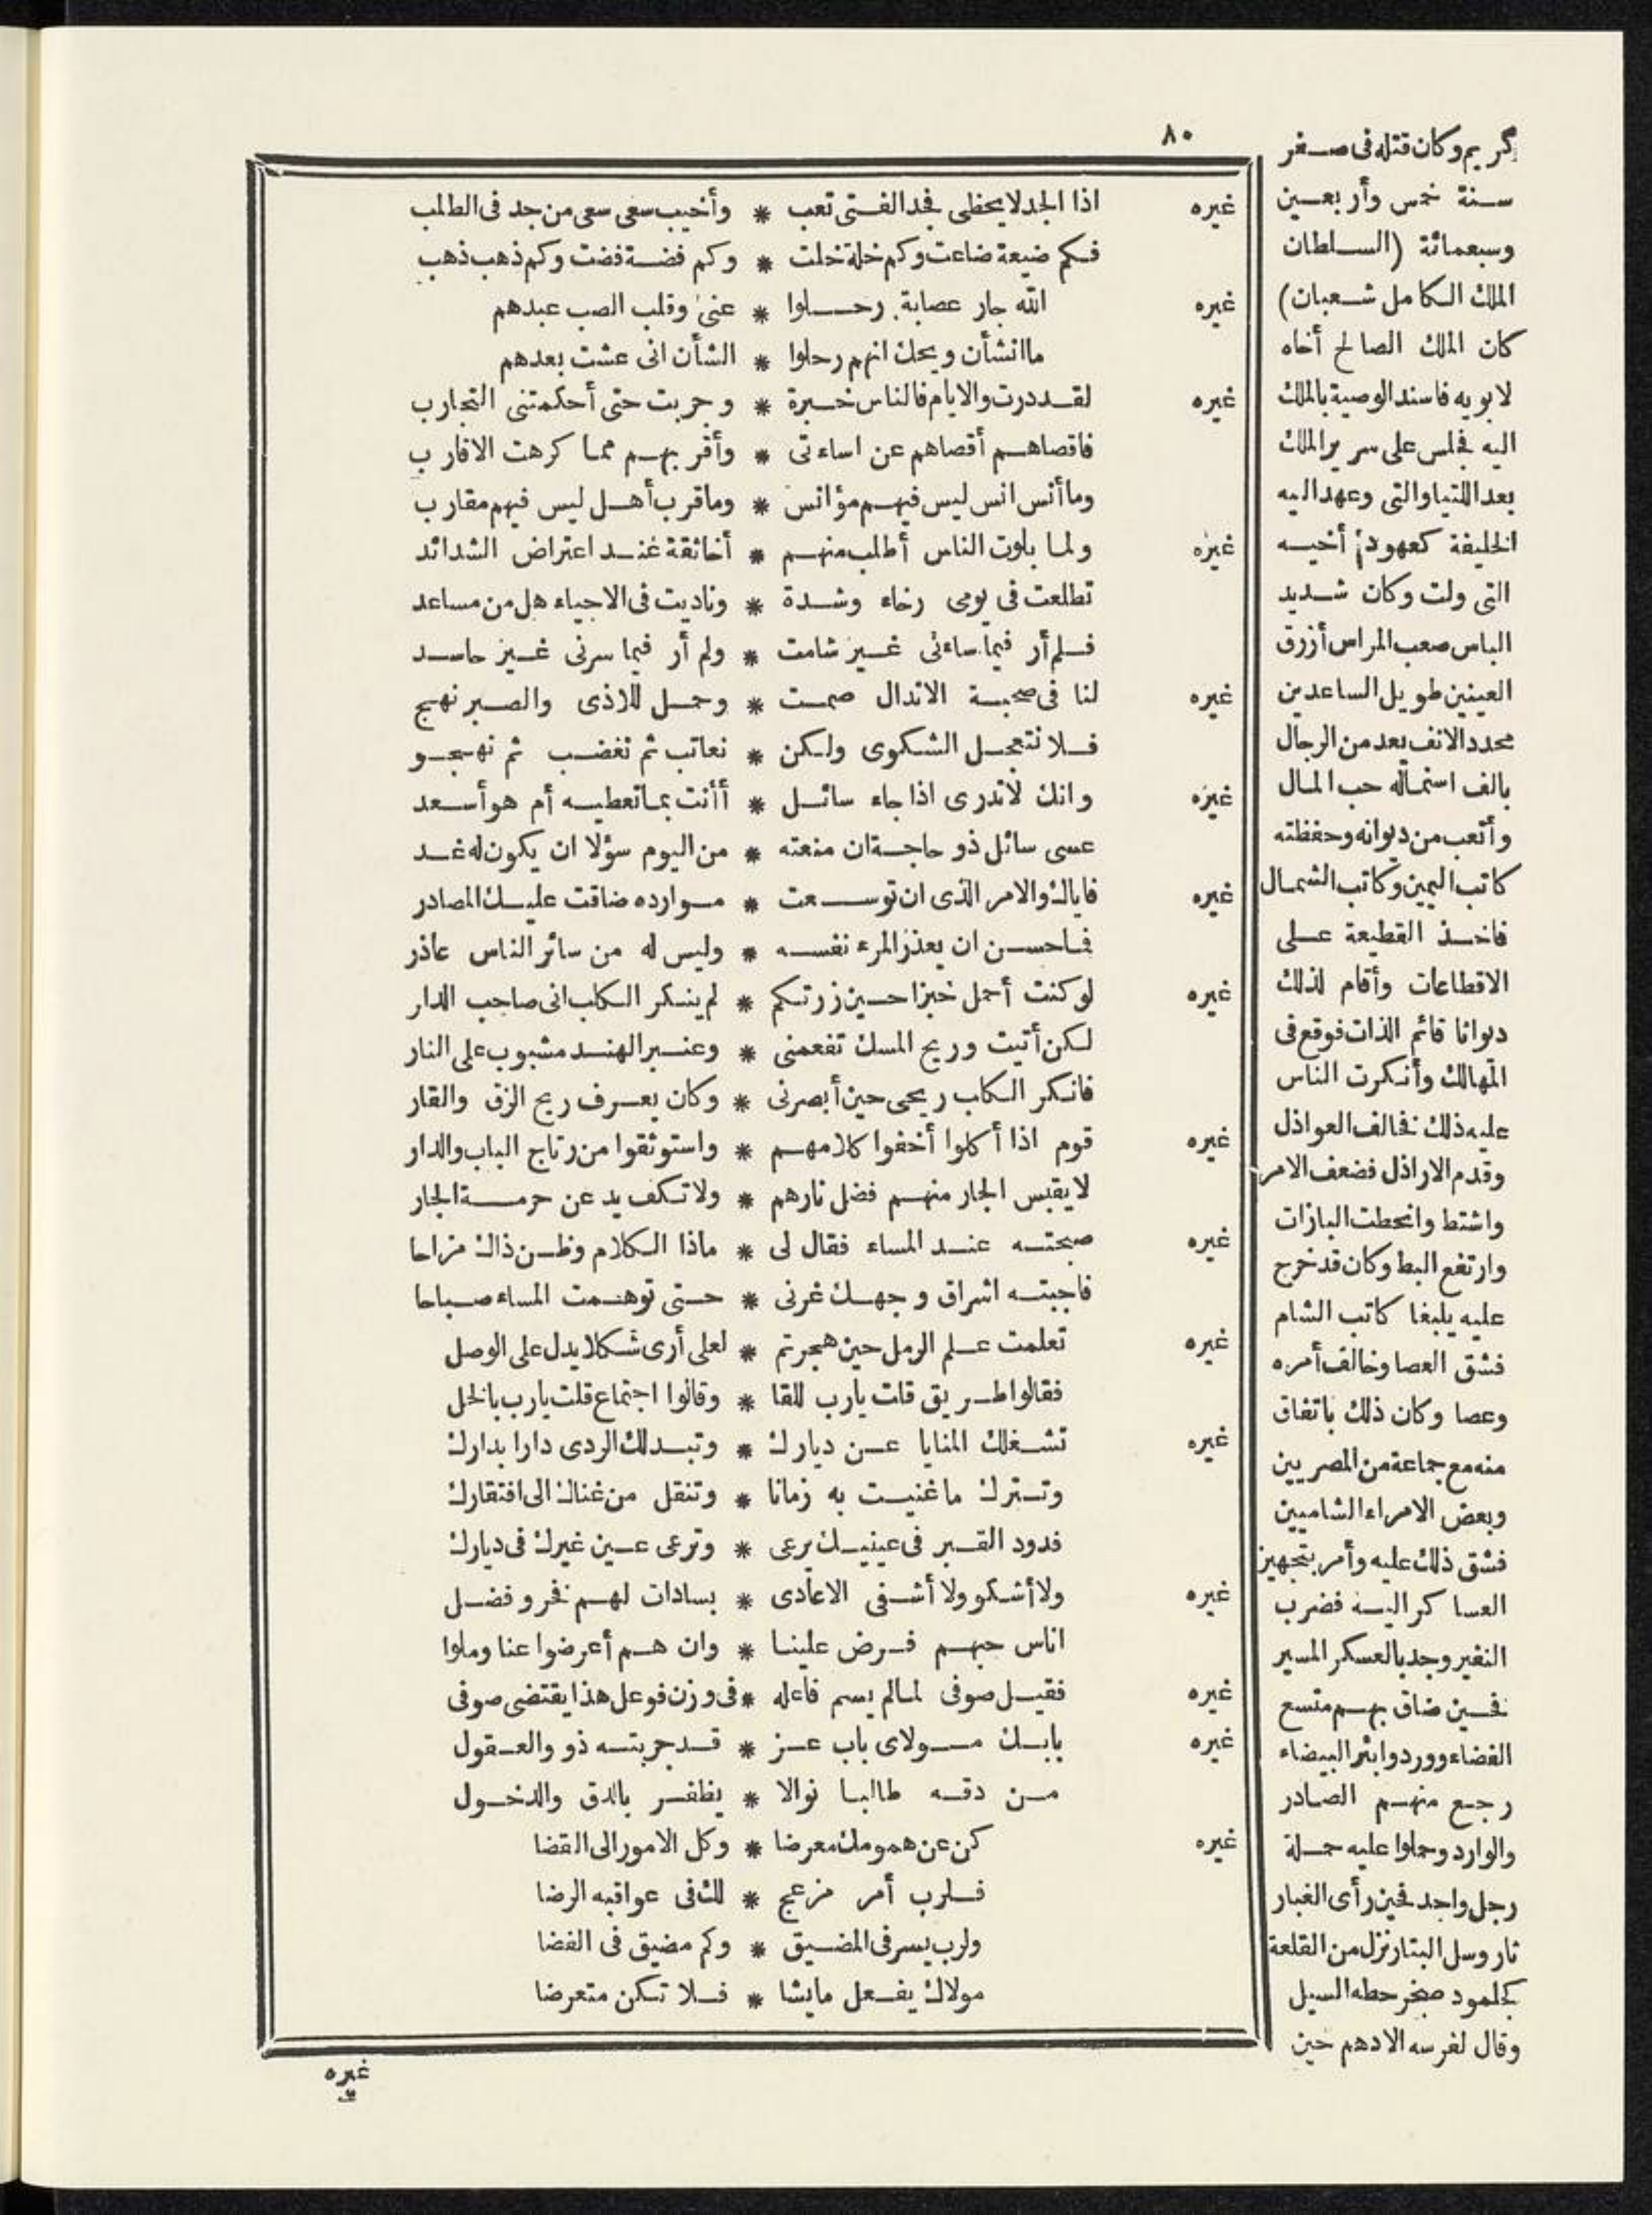 ٨٠
غيره اذا الجد لا يحظى فجد الفتى تعب * وأخيب سعى سعى من جد فى الطلب
فكم ضيعة ضاعت وكم خلة خلت * وكم فضة فضت وكم ذهب ذهب
غيره الله جار عصابة رحلوا * عنى وقلب الصب عبدهم
ما الشأن ويحك انهم رحلوا * الشأن انى عشت بعدهم
غيره لقد درت والايام فالناس خبرة * وجربت حتى أحكمتنى التجارب
فاقصاهم أقصاهم عن اساءتى * وأقربهم مما كرهت الاقارب
وما أنس انس ليس فيهم مؤانس * وما قرب أهل ليس فيهم مقارب
غيره ولما بلوت الناس أطلب منهم * أخا ثقة عند اعتراض الشدائد
تطلعت فى يومى رخاء وشدة * وناديت فى الاحياء هل من مساعد
فلم أر فيما ساءنى غير شامت * ولم أر فيما سرنى غير حاسد
غيره لنا فى صحبة الاندال صمت * وحمل للاذى والصبر نهج
فلا نتعجل الشكوى ولكن * نعاتب ثم نغضب ثم نهجو
غيره وانك لا تدرى اذا جاء سائل * أأنت بما تعطيه أم هو أسعد
عسى سائل ذو حاجة ان منعته * من اليوم سؤلا ان يكون له غد
غيره فاياك والامر الذى ان توسعت * موارده ضاقت عليك المصادر
فما حسن ان يعذر المرء نفسه * وليس له من سائر الناس عاذر
غيره لو كنت أحمل خبزا حين زرتكم * لم ينكر الكلب انى صاحب الدار
لكن أتيت وريح المسك تفعمنى * وعنبر الهند مشبوب على النار
فانكر الكلب ريحى حين أبصرنى * وكان يعرف ريح الزق والقار
غيره قوم اذا أكلوا أخفوا كلامهم * واستوثقوا من رتاج الباب والدار
لا يقبس الجار منهم فضل نارهم * ولا تكف يد عن حرمة الجار
غيره صبحته عند المساء فقال لى * ماذا الكلام وظن ذاك مزاحا
فاجبته اشراق وجهك غرنى * حتى توهمت المساء صباحا
غيره تعلمت علم الرمل حين هجرتم * لعلى أرى شكلا يدل على الوصل
فقالوا طريق قلت يارب للقا * وقالوا اجتماع قلت يارب بالخل
غيره تشغلك المنايا عن ديارك * وتبدلك الردى دارا بدارك
وتترك ما غنيت به زمانا * وتنقل من غناك الى افتقارك
فدود القبر فى عينيك يرعى * وترعى عين غيرك فى ديارك
غيره ولا أشكو ولا أشفى الاعادى * بسادات لهم فخر وفضل
اناس حبهم فرض علينا * وان هم أعرضوا عنا وملوا
غيره فقيل صوفى لما لم يسم فاعله * فى وزن فوعل هذا يقتضى صوفى
غيره بابك مولاى باب عز * قد جربته ذوو العقول
من دقه طالبا نوالا * يظفر بالدق والدخول
غيره كن عن همومك معرضا * وكل الامور الى القضا
فلرب أمر مزعج * لك فى عواقبه الرضا
ولرب يسر فى المضيق * وكم مضيق فى الفضا
مولاك يفعل ما يشا * فلا تكن متعرضا
غيره
كريم وكان قتله فى صفر
سنة خمس وأربعين
وسبعمائة (السلطان
الملك الكامل شعبان)
كان الملك الصالح أخاه
لابويه فاسند الوصية بالملك
اليه فجلس على سرير الملك
بعد اللتيا والتى وعهد اليه
الخليفة كعهود أخيه
التى ولت وكان شديد
الباس صعب المراس أزرق
العينين طويل الساعدين
محدد الانف يعد من الرجال
بالف استماله حب المال
وأتعب من ديوانه وحفظته
كاتب اليمين وكاتب الشمال
فاخذ القطيعة على
الاقطاعات وأقام لذلك
ديوانا قائم الذات فوقع فى
المهالك وأنكرت الناس
عليه ذلك فخالف العواذل
وقدم الاراذل فضعف الامر
واشتط وانحطت البازات
وارتفع البط وكان قد خرج
عليه يلبغا كاتب الشام
فشق العصا وخالف أمره
وعصا وكان ذلك باتفاق
منه مع جماعة من المصريين
وبعض الامراء الشاميين
فشق ذلك عليه وأمر بتجهيز
العساكر اليه فضرب
النفير وجد بالعسكر المسير
فحين ضاق بهم متسع
الفضاء ووردوا بئر البيضاء
رجع منهم الصادر
والوارد وحملوا عليه حملة
رجل واحد فحين رأى الغبار
ثار وسل البتار نزل من القلعة
كجلمود صخر حطه السيل
وقال لفرسه الادهم حين